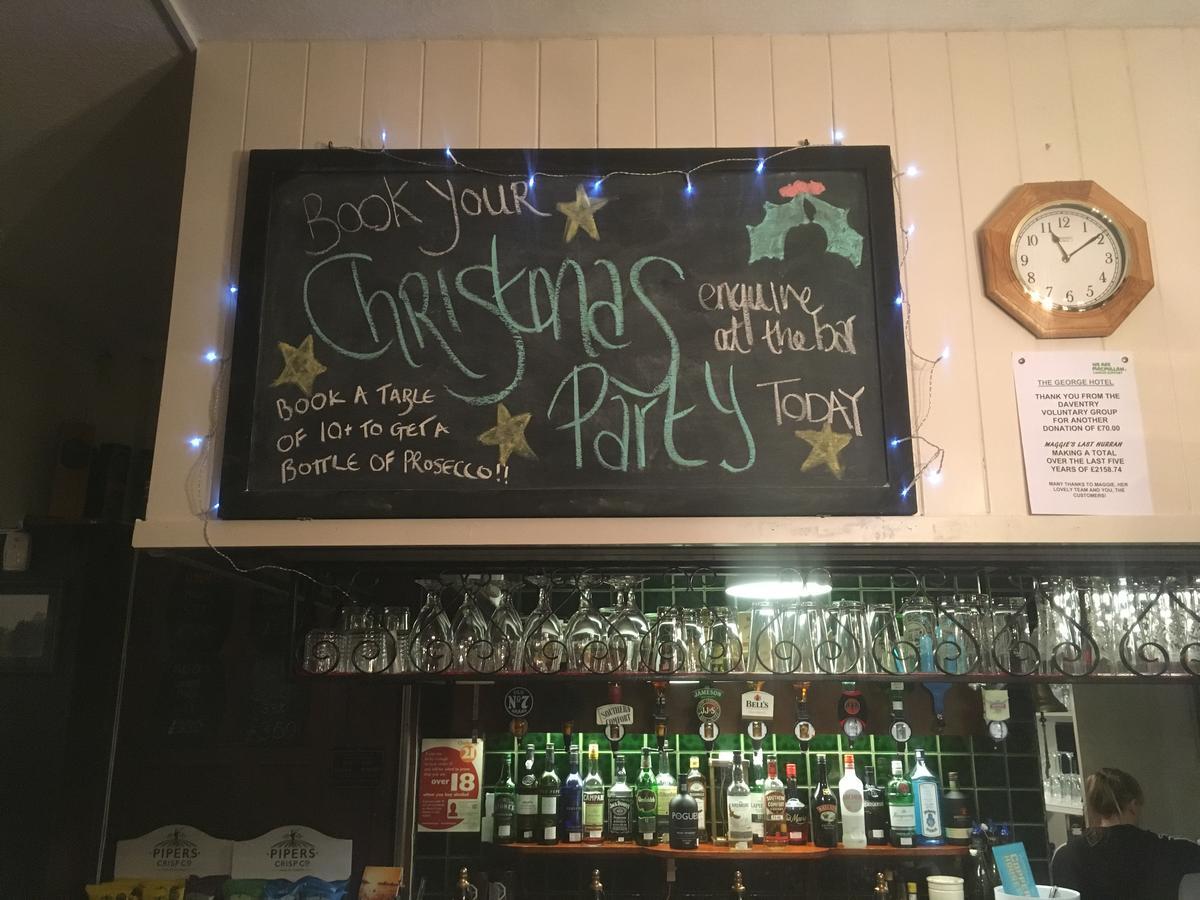 BOOK YOUR
Christmas
Party
enquire
at the bar
TODAY
BOOK A TABLE
OF 10+ TO GET A
BOTTLE OF PROSECCO!!
12
1
2
3
4
5
6
7
8
9
10
11
WE ARE
MACMILLAN.
CANCER SUPPORT
THE GEORGE HOTEL
THANK YOU FROM THE
DAVENTRY
VOLUNTARY GROUP
FOR ANOTHER
DONATION OF £70.00
MAGGIE'S LAST HURRAH
MAKING A TOTAL
OVER THE LAST FIVE
YEARS OF £2158.74
MANY THANKS TO MAGGIE, HER
LOVELY TEAM AND YOU, THE
CUSTOMERS!
No7
SOUTHERN
COMFORT
JAMESON
BELL'S
21
over 18
CAMPARI
POGUES
PIPERS
CRISP CO
PIPERS
CRISP CO